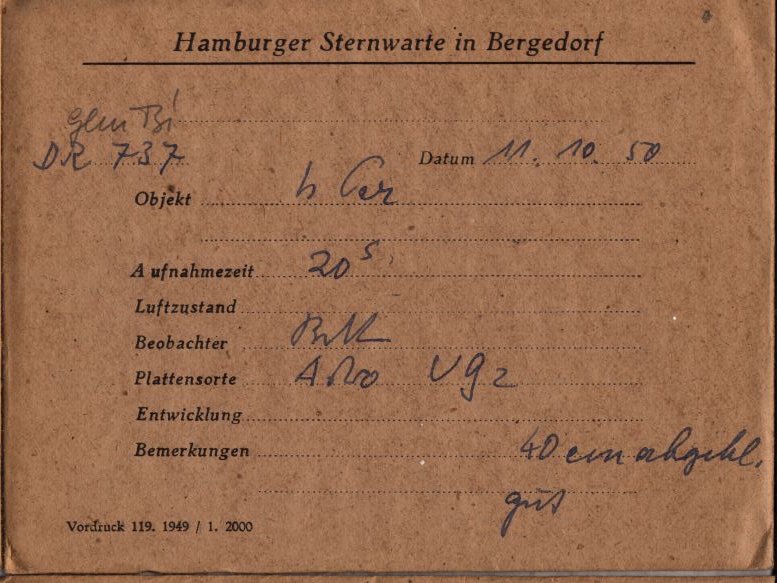 Hamburger Sternwarte in Bergedorf
DR 737
Datum 11. 10. 50
Objekt h Cer
Aufnahmezeit 20 s
Luftzustand
Beobachter
Plattensorte Astro VG2
Entwicklung
Bemerkungen 40 cm abgebl.
gut
Vordruck 119. 1949 / 1. 2000